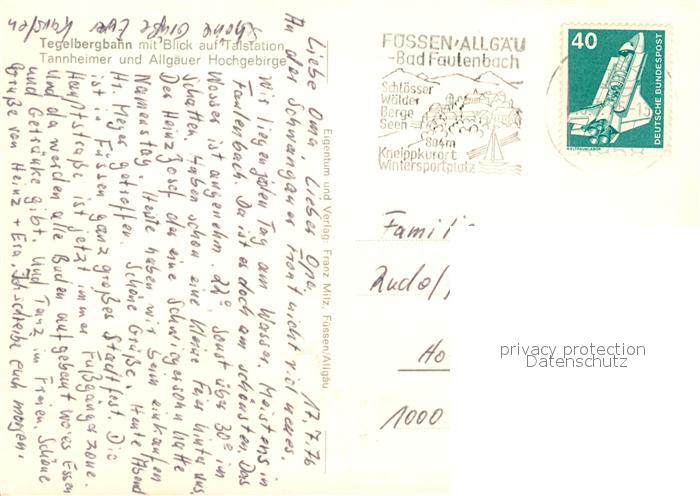 Schöne Grüße Euer Karsten
Tegelbergbahn mit Blick auf Talstation
Tannheimer und Allgäuer Hochgebirge
17.7.76
Liebe Oma, Lieber Opa,
An der Schwangauer Front nicht viel neues.
Wir liegen jeden Tag am Wasser. Meistens in
Faulenbach. Da ist es doch am schönsten. Das
Wasser ist angenehm. 22° Sonst über 30° im
Schatten. Haben schon eine kleine Feier hinter uns,
Der Heinz Josef der eine Schwiegersohn hatte
Namenstag. Heute haben wir beim einkaufen
Hr. Meyer getroffen. Schöne Grüße. Heute Abend
ist in Füssen ganz großes Stadtfest. Die
Hauptstraße ist jetzt immer Fußgängerzone.
Und da werden alle Buden aufgebaut wo es Essen
und Getränke gibt. Und Tanz im Freien. Schöne
Grüße von Heinz + Eva. Ich schreibe Euch morgen.
Eigentum und Verlag: Franz Milz, Füssen/Allgäu
FÜSSEN/ALLGÄU
-Bad Faulenbach
Schlösser
Wälder
Berge
Seen
804m
Kneippkurort
Wintersportplatz
40
DEUTSCHE BUNDESPOST
WELTRAUMLABOR
Famili
Rudolf
Ho
1000
privacy protection
Datenschutz